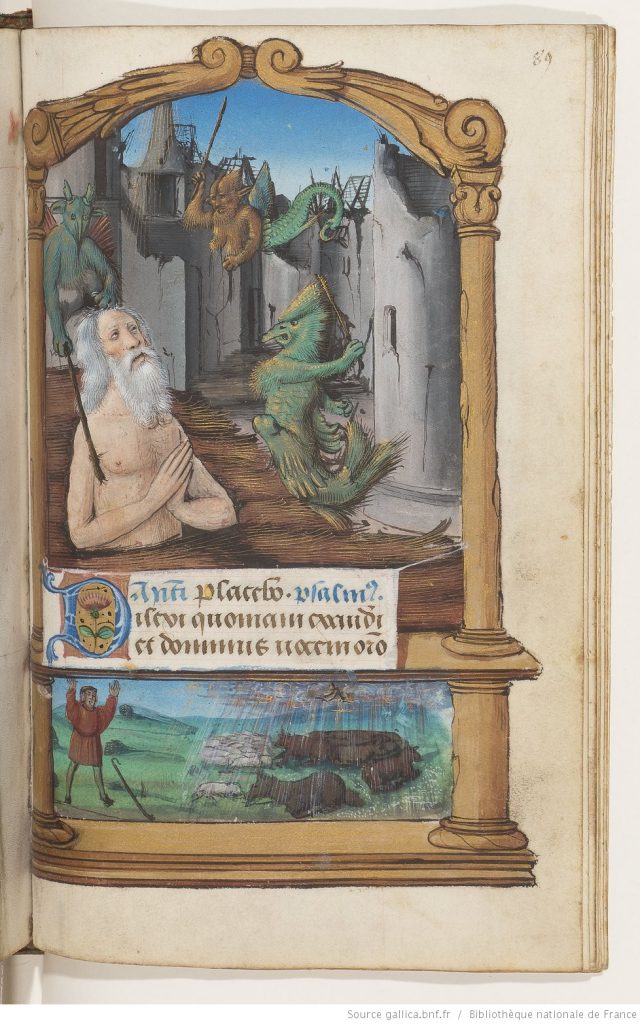 89
Anti placebo. psalmꝰ.
Dilexi quoniam exaudi
et dominus uocem oro
Source gallica.bnf.fr / Bibliothèque nationale de France